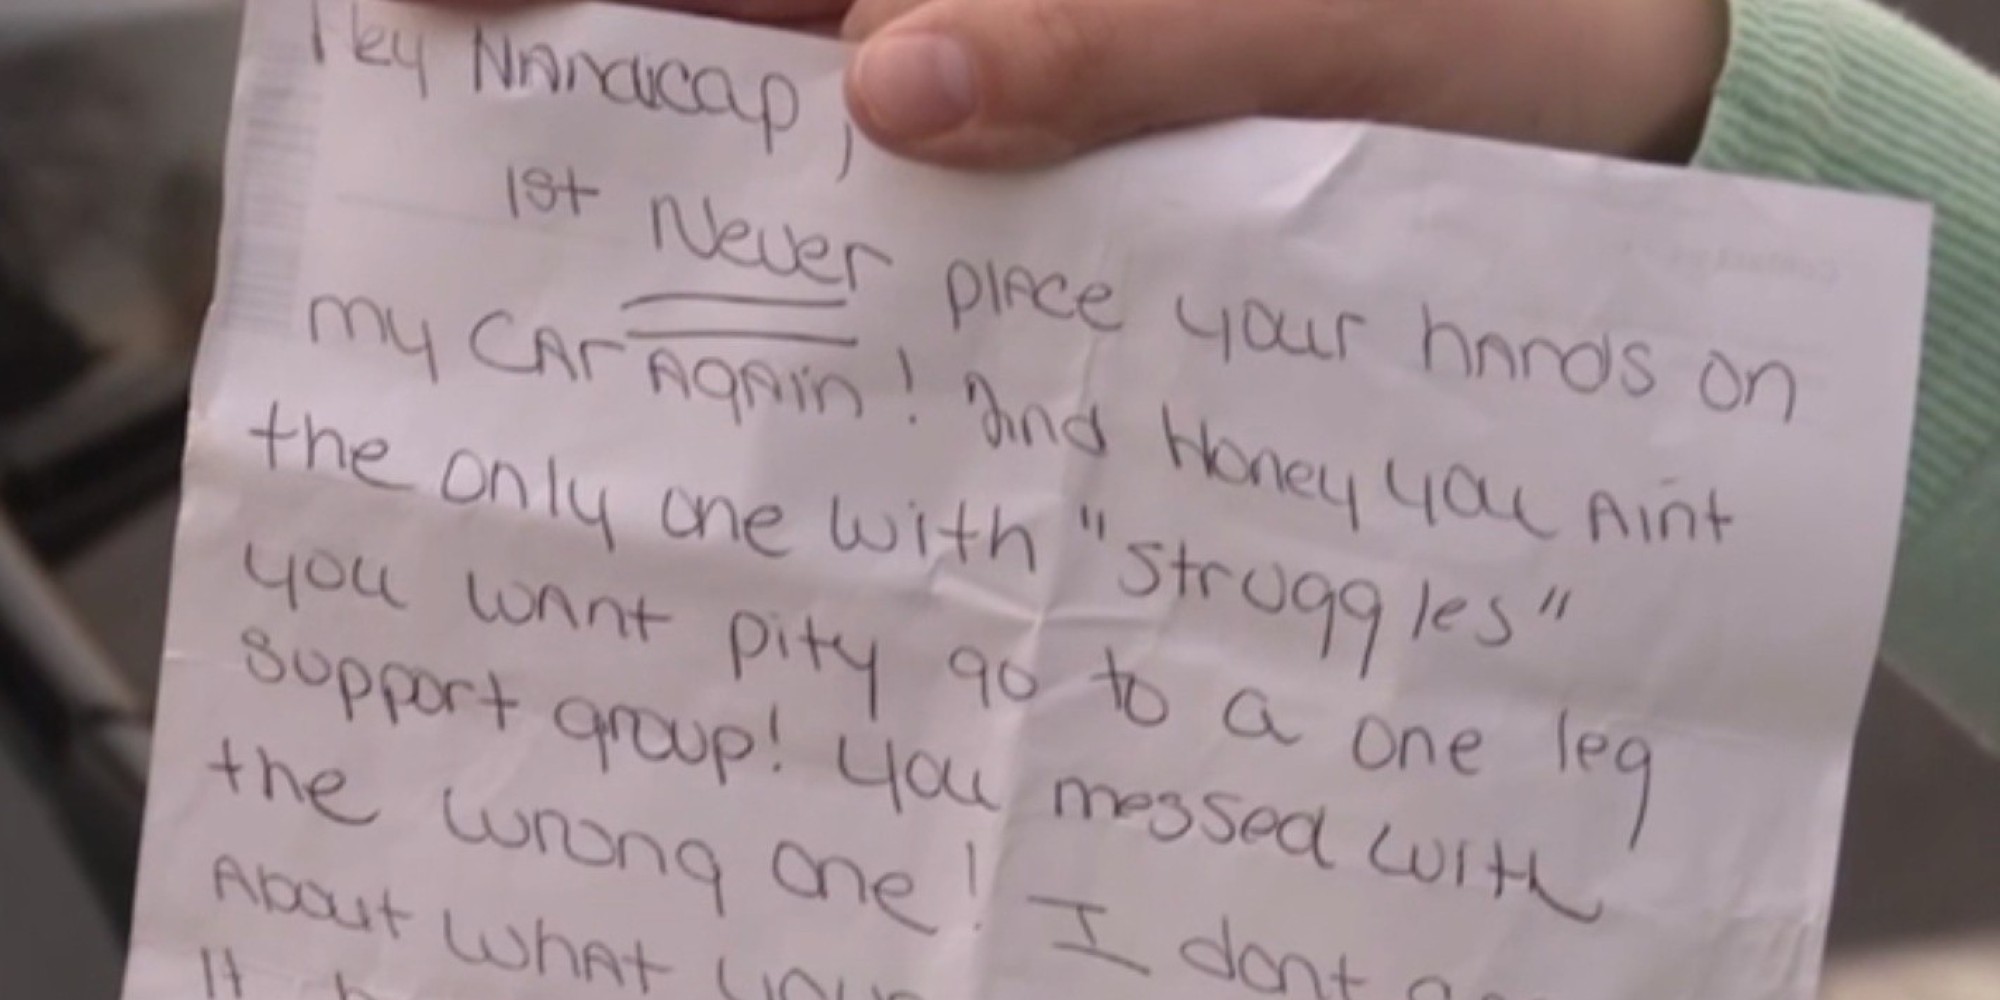 Hey Handicap,
1st Never place your hands on
my car again! And Honey you aint
the only one with "struggles"
you want pity go to a one leg
support group! You messed with
the wrong one! I dont
About what
It